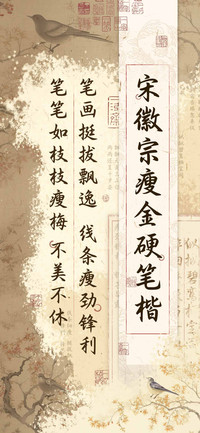 宋徽宗瘦金硬笔楷
笔画挺拔飘逸 线条瘦劲锋利
笔笔如枝枝瘦梅 不美不休